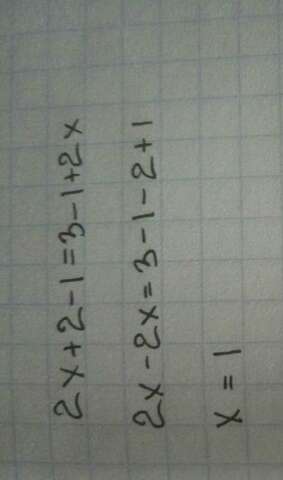 2x+2-1=3-1+2x
2x-2x=3-1-2+1
x=1